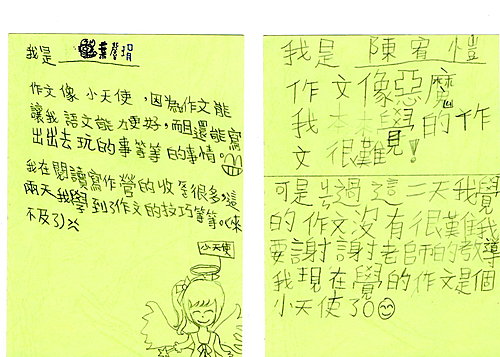 我是 葉馨瑁
作文像小天使，因為作文能
讓我語文能力更好，而且還能寫
出出去玩的事等等的事情。
我在閱讀寫作營的收很多，這
兩天我學到了作文的技巧等等。(來
不及了)
小天使
我是 陳宥愷
作文像惡魔
我本來覺的作
文很難！
可是過這二天我覺
的作文沒有很難我
要謝謝老師的教導
我現在覺的作文是個
小天使了